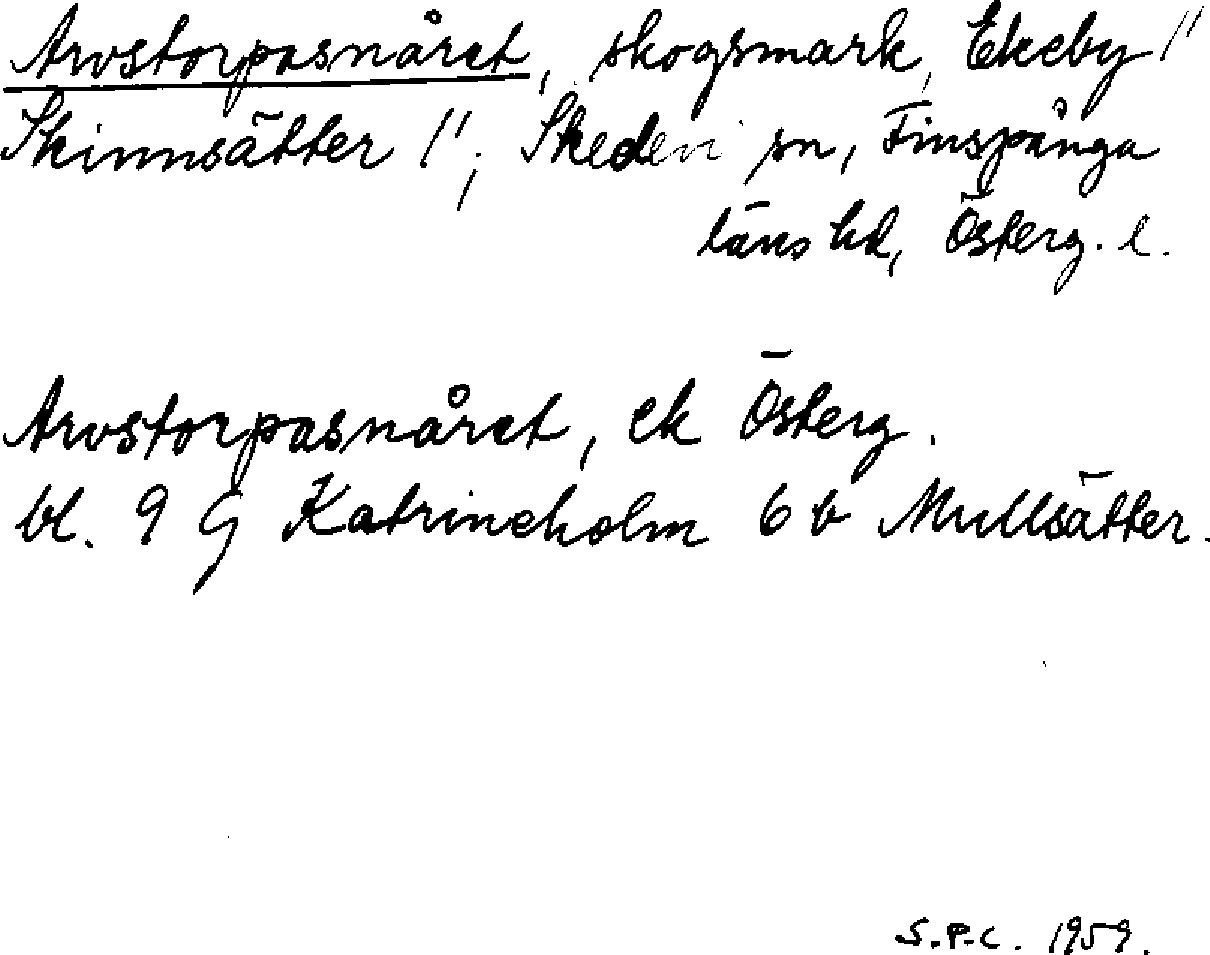 Arvstorpasnåret, skogsmark, Ekeby 1/1
Skinnsätter 1/1, Skedevi sn, Finspånga
läns hd, Österg. l.
Arvstorpasnåret, ek Österg.
bl. 9 G Katrineholm 6 b Mullsätter.
S.P-C. 1959.